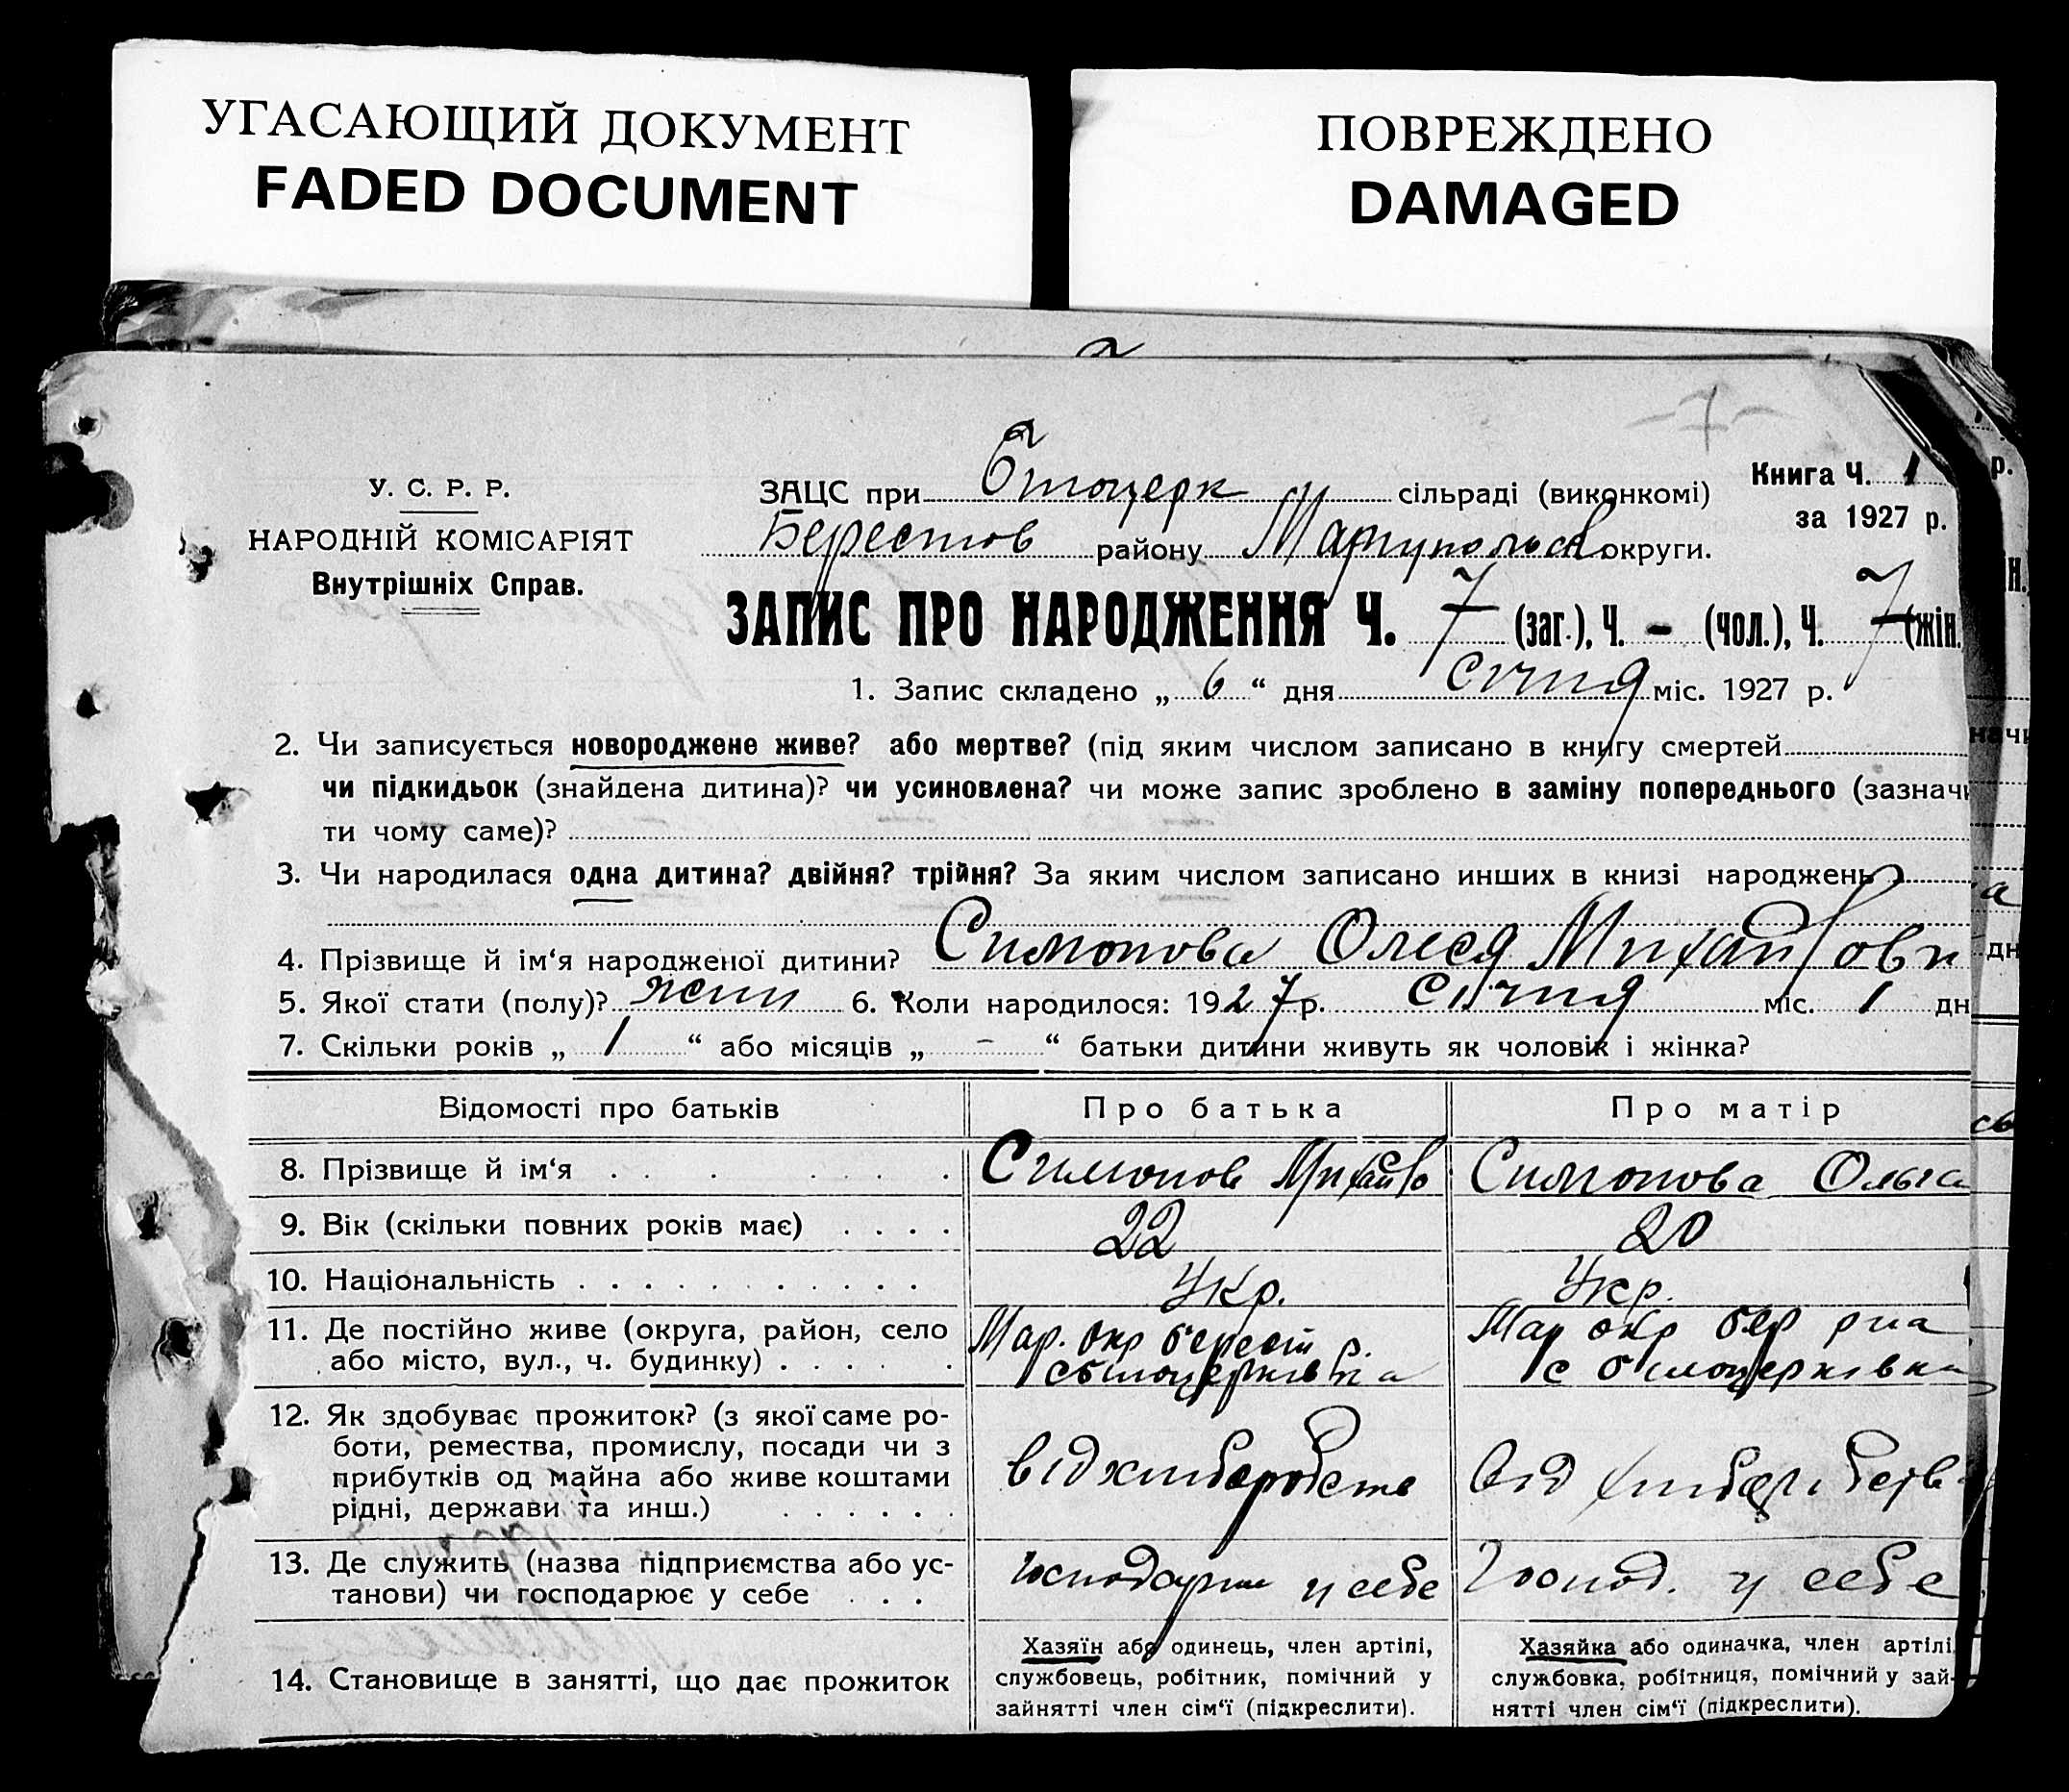 УГАСАЮЩИЙ ДОКУМЕНТ
FADED DOCUMENT
ПОВРЕЖДЕНО
DAMAGED
-7-
У. С. Р. Р.
НАРОДНІЙ КОМІСАРІЯТ
Внутрішніх Справ.
Книга Ч. 1
за 1927 р.
ЗАЦС при Білоцерк сільраді (виконкомі)
Берестов району Маріупольськ округи.
ЗАПИС ПРО НАРОДЖЕННЯ Ч. 7 (заг.), Ч. - (чол.), Ч. 7 (жін.
1. Запис складено „ 6 “ дня січня міс. 1927 р.
2. Чи записується новороджене живе? або мертве? (під яким числом записано в книгу смертей
чи підкидьок (знайдена дитина)? чи усиновлена? чи може запис зроблено в заміну попереднього (зазначи
ти чому саме)?
3. Чи народилася одна дитина? двійня? трійня? За яким числом записано инших в книзі народжень
4. Прізвище й ім‘я народженої дитини? Симонова Олеся Михайлови
5. Якої стати (полу)? жін 6. Коли народилося: 1927 р. січня міс. 1 дн
7. Скільки років „ 1 “ або місяців „ - “ батьки дитини живуть як чоловік і жінка?
Відомості про батьків Про батька Про матір
8. Прізвище й ім‘я Симонов Михайло Симонова Ольга
9. Вік (скільки повних років має) 22 20
10. Національність Укр. Укр.
11. Де постійно живе (округа, район, село Мар. окр берест р. Мар окр бер р-на
або місто, вул., ч. будинку) с білоцерківка с білоцерківка
12. Як здобуває прожиток? (з якої саме ро-
боти, ремества, промислу, посади чи з
прибутків од майна або живе коштами
рідні, держави та инш.)
від хліборобств від хліборобств
13. Де служить (назва підприємства або ус-
танови) чи господарює у себе
господарює у себе Господ. у себе
14. Становище в занятті, що дає прожиток
Хазяїн або одинець, член артілі,
службовець, робітник, помічний у
зайнятті член сім‘ї (підкреслити).
Хазяйка або одиначка, член артілі
службовка, робітниця, помічний у зай-
нятті член сім‘ї (підкреслити).